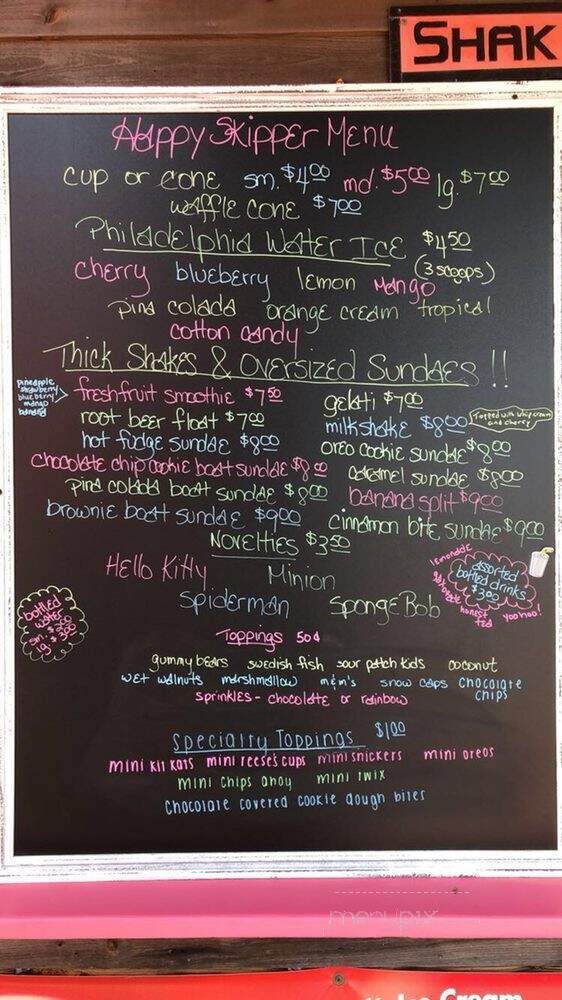 SHAK
Happy Skipper Menu
cup or cone sm. $4.00 md. $5.00 lg. $7.00
waffle cone $7.00
Philadelphia Water Ice $4.50
(3 scoops)
cherry blueberry lemon mango
pina colada orange cream tropical
cotton candy
Thick Shakes & Oversized Sundaes !!
pineapple
strawberry
blueberry
mango
banana
fresh fruit smoothie $7.50
gelati $7.00
root beer float $7.00
milkshake $8.00
Topped with whip cream
and cherry
hot fudge sundae $8.00
oreo cookie sundae $8.00
chocolate chip cookie boat sundae $8.00
caramel sundae $8.00
pina colada boat sundae $8.00
banana split $9.00
brownie boat sundae $9.00
cinnamon bite sundae $9.00
Novelties $3.50
Hello Kitty Minion
Spiderman SpongeBob
lemonade
assorted
bottled drinks
$3.00
honest
tea
yoohoo!
bottled
water
sm.
lg. $3.00
Toppings 50¢
gummy bears swedish fish sour patch kids coconut
wet walnuts marshmallow m&m's snow caps chocolate
chips
sprinkles - chocolate or rainbow
Specialty Toppings $1.00
mini kit kats mini reese's cups mini snickers mini oreos
mini chips ahoy mini twix
chocolate covered cookie dough bites
menupix
Cream